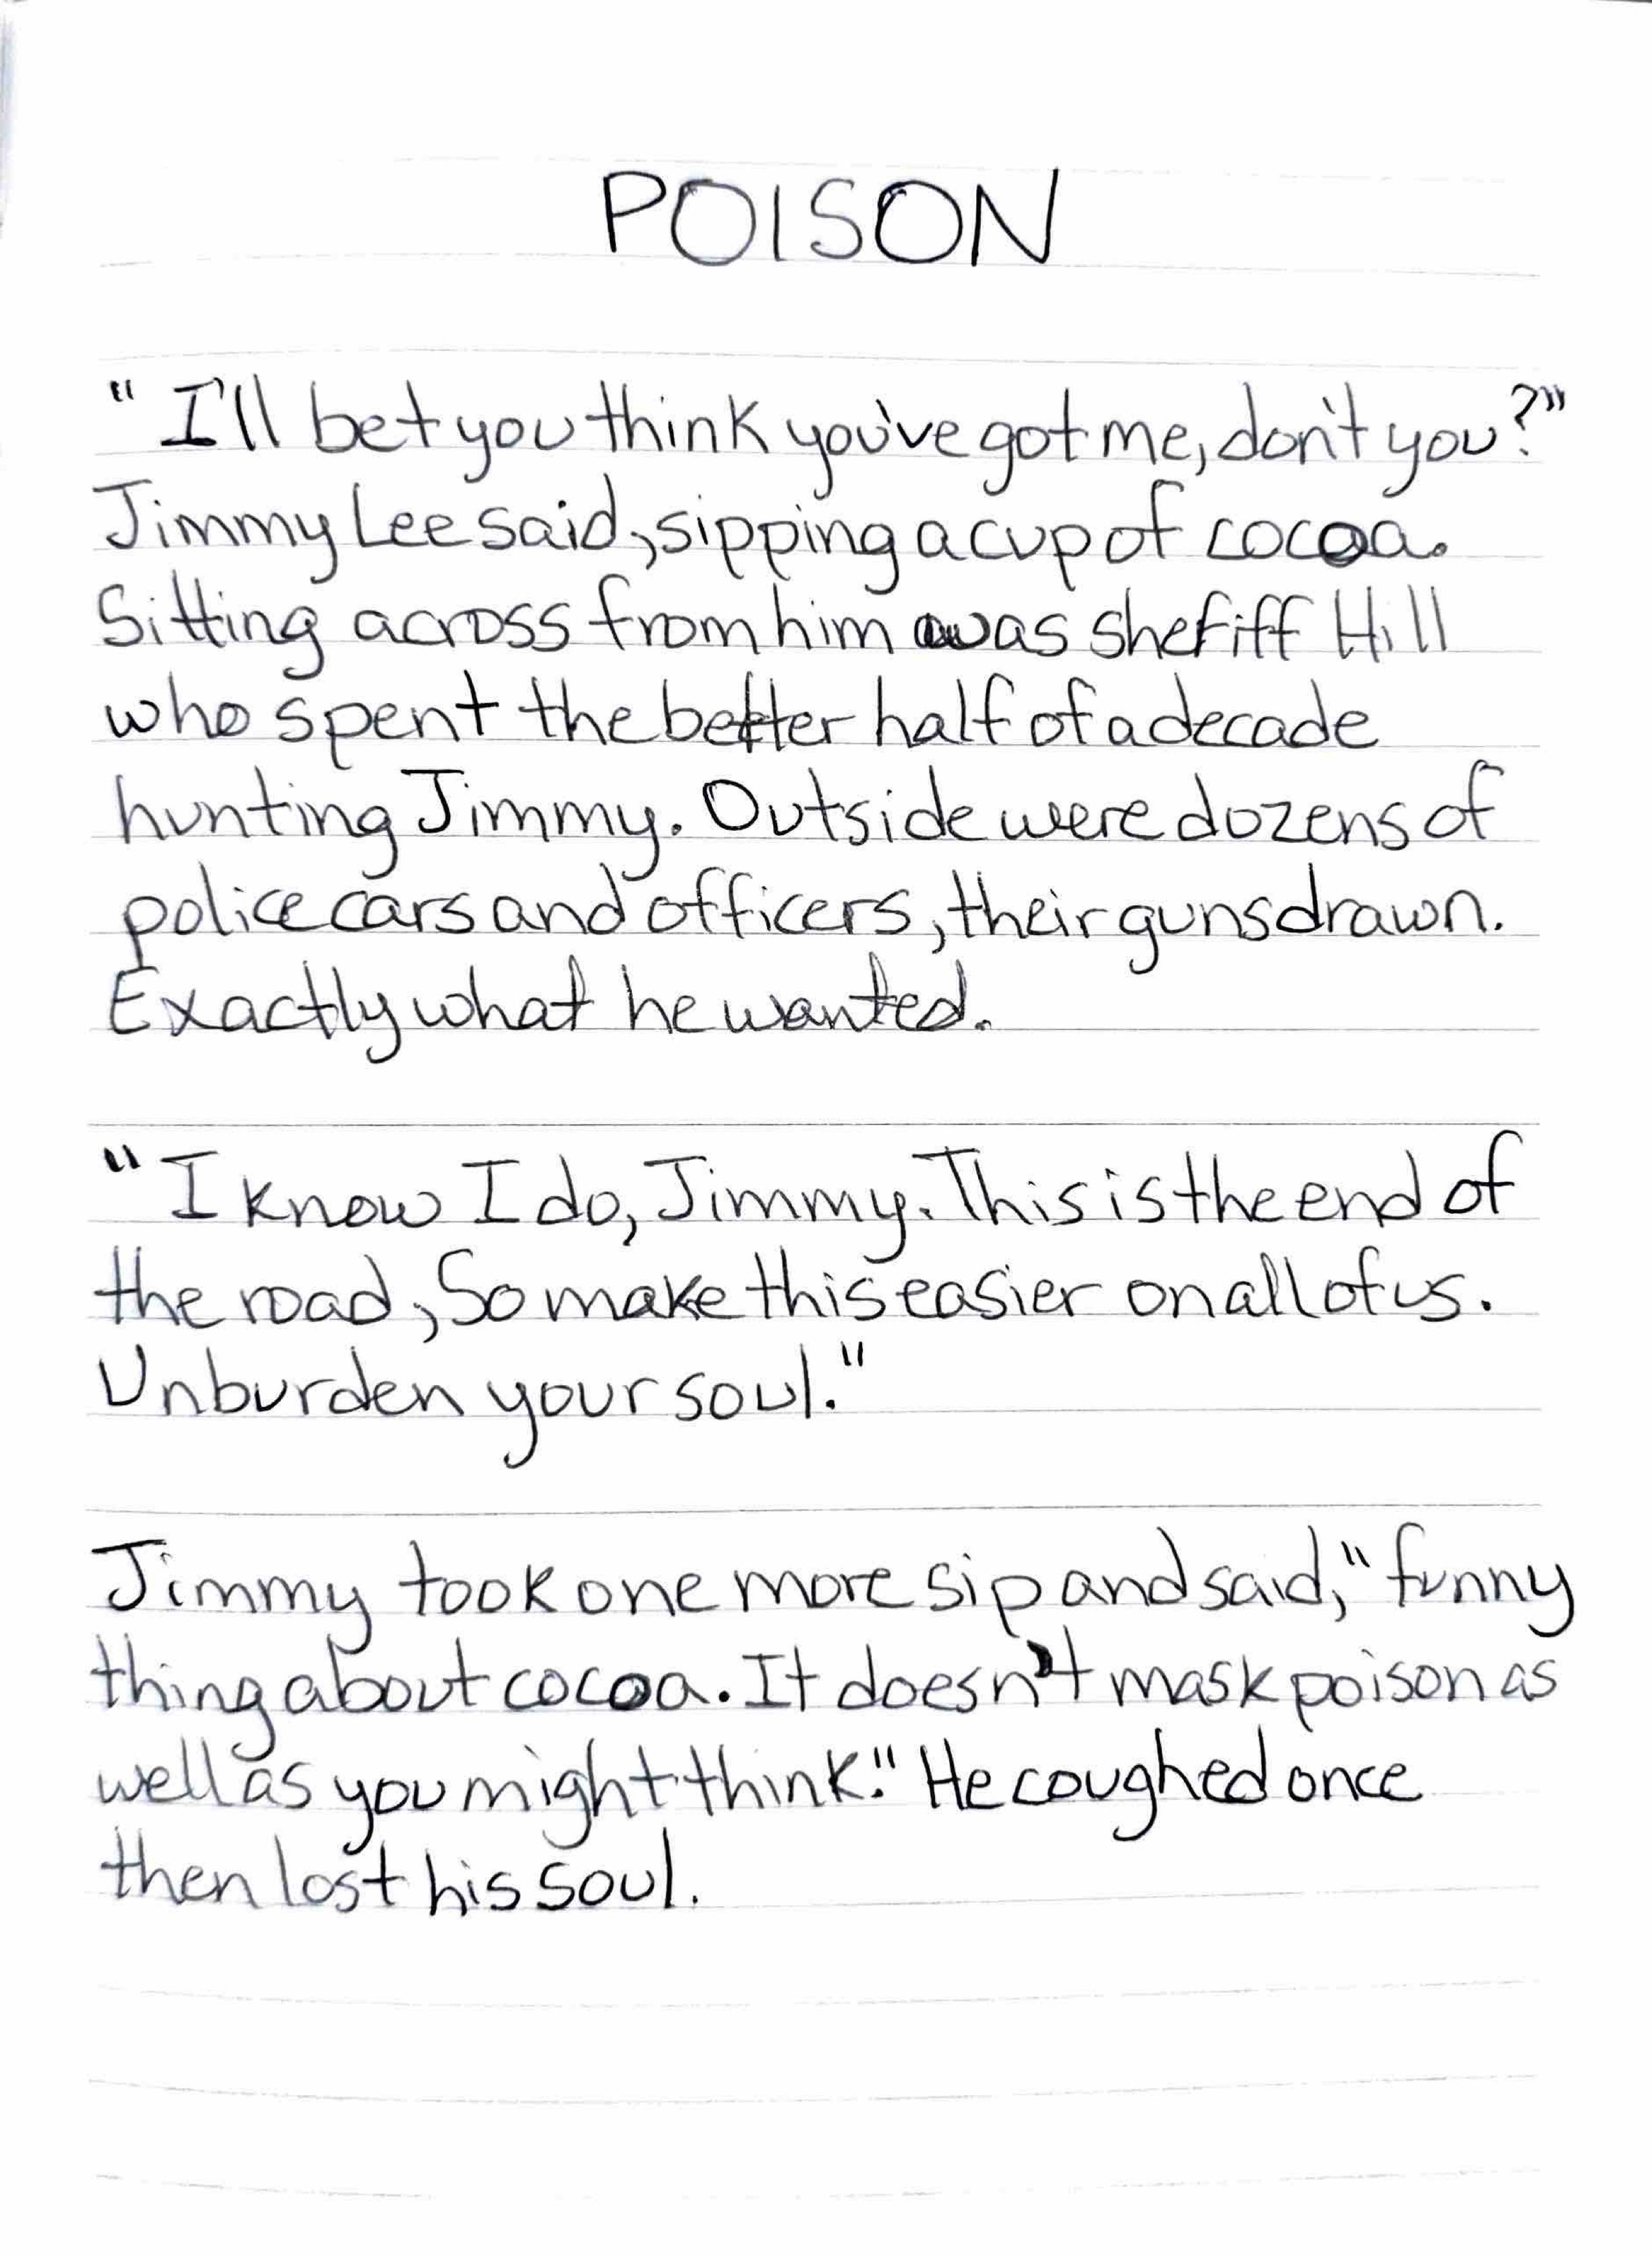 POISON
"I'll bet you think you've got me, don't you?"
Jimmy Lee said, sipping a cup of cocoa.
Sitting across from him was sheriff Hill
who spent the better half of a decade
hunting Jimmy. Outside were dozens of
police cars and officers, their guns drawn.
Exactly what he wanted.
"I know I do, Jimmy. This is the end of
the road, So make this easier on all of us.
Unburden your soul."
Jimmy took one more sip and said, "funny
thing about cocoa. It doesn't mask poison as
well as you might think." He coughed once
then lost his soul.